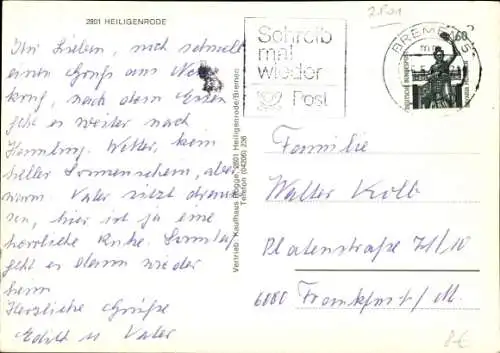 2801 HEILIGENRODE
Ihr Lieben, noch schnell
einen Gruß aus
nach dem Essen
geht es weiter nach
Hamburg. Wetter, kein
heller Sonnenschein, aber
warm. Vater sitzt draus-
sen, hier ist ja eine
herrliche Ruhe. Sonntag
geht es dann wieder
heim
Herzliche Grüße
Edith u Vater
Vertrieb: Kaufhaus 2801 Heiligenrode/Bremen
Telefon (04206) 236
Schreib
mal
wieder
Post
BREMEN 5
60
Familie
Walter Kolb
Platenstraße 71/10
6000 Frankfurt/M.
8€